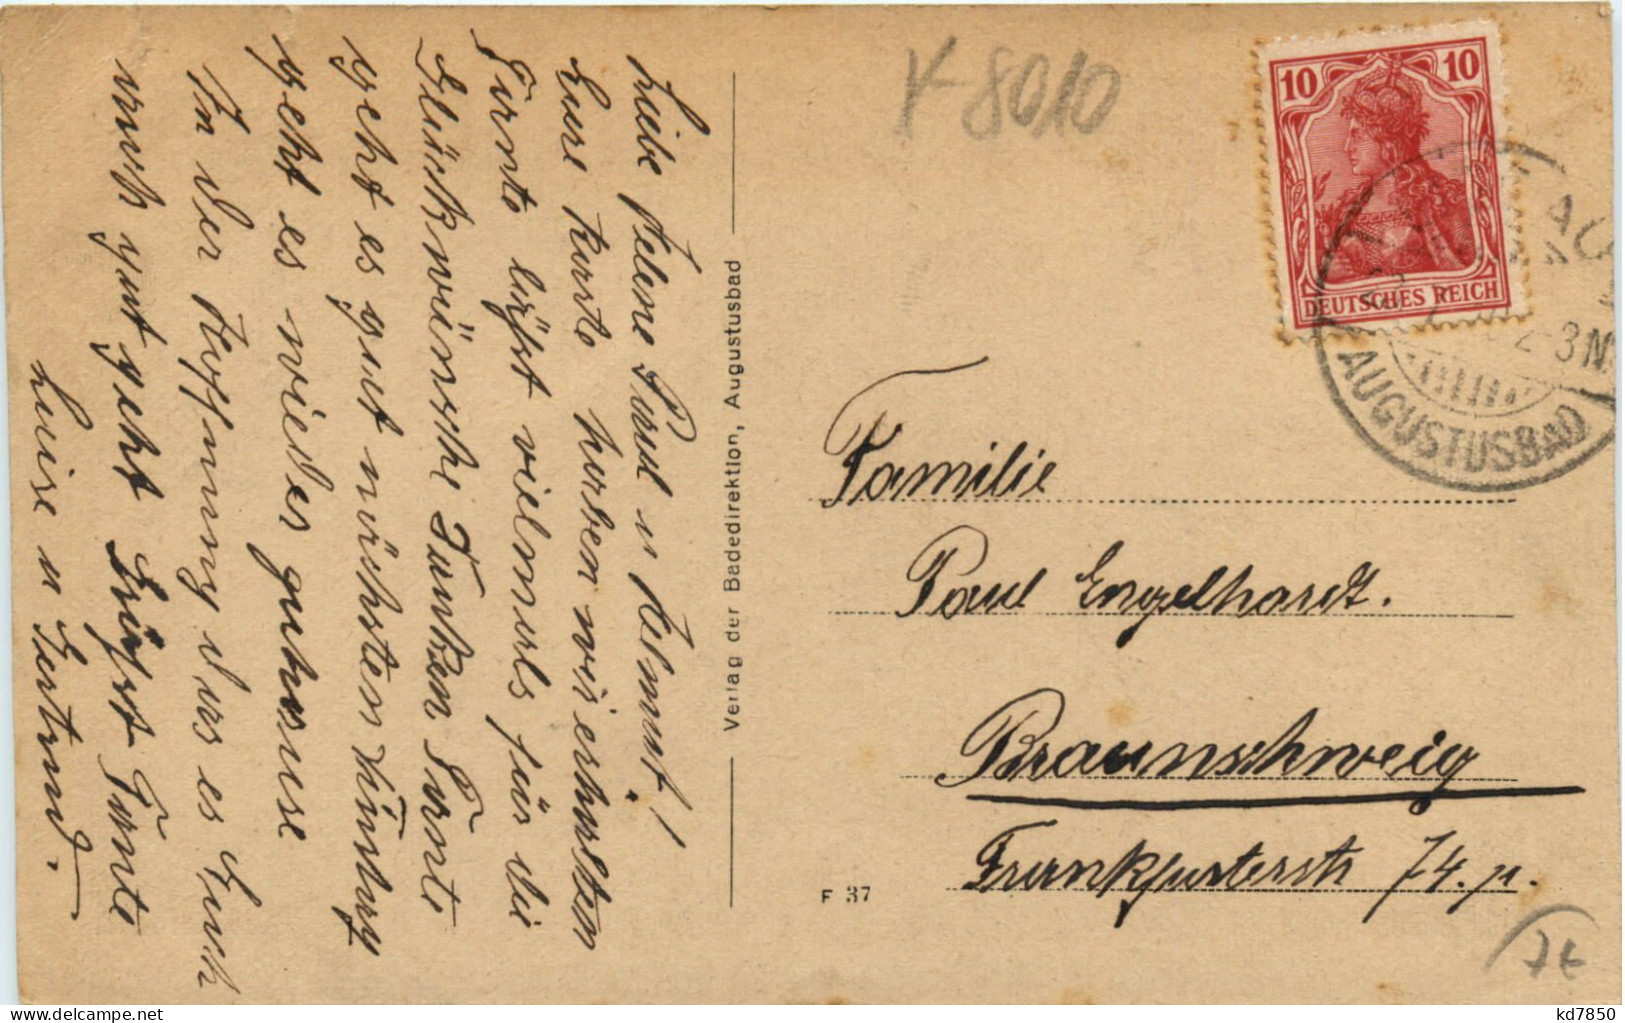 Liebe Helene Paul u Helmut!
Eure Karte haben wir erhalten
Tante läßt vielmals für die
Glückwünsche danken. Tante
geht es gut nächsten
geht es wieder zuhause
In der Hoffnung das es Euch
auch gut geht Grüßt Tante
Luise u Gertrud.
Verlag der Badedirektion, Augustusbad
K 8010
10 10
DEUTSCHES REICH
2-3N.
AUGUSTUSBAD
Familie
Paul Engelhardt.
Braunschweig
Frankfurterstr 74. p.
F 37
7€
kd7850